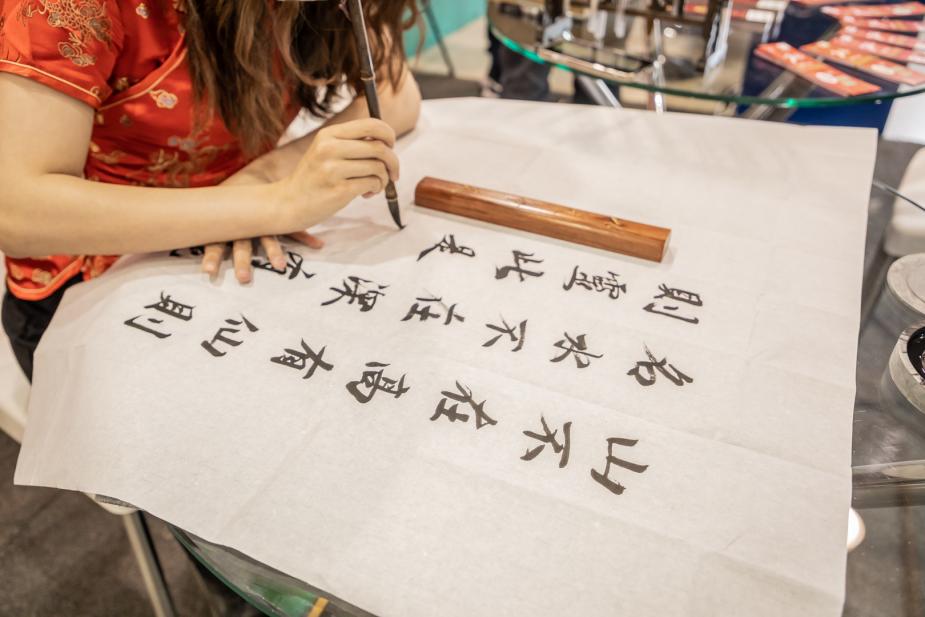 山不在高有仙則
名水不在深有
則靈此是